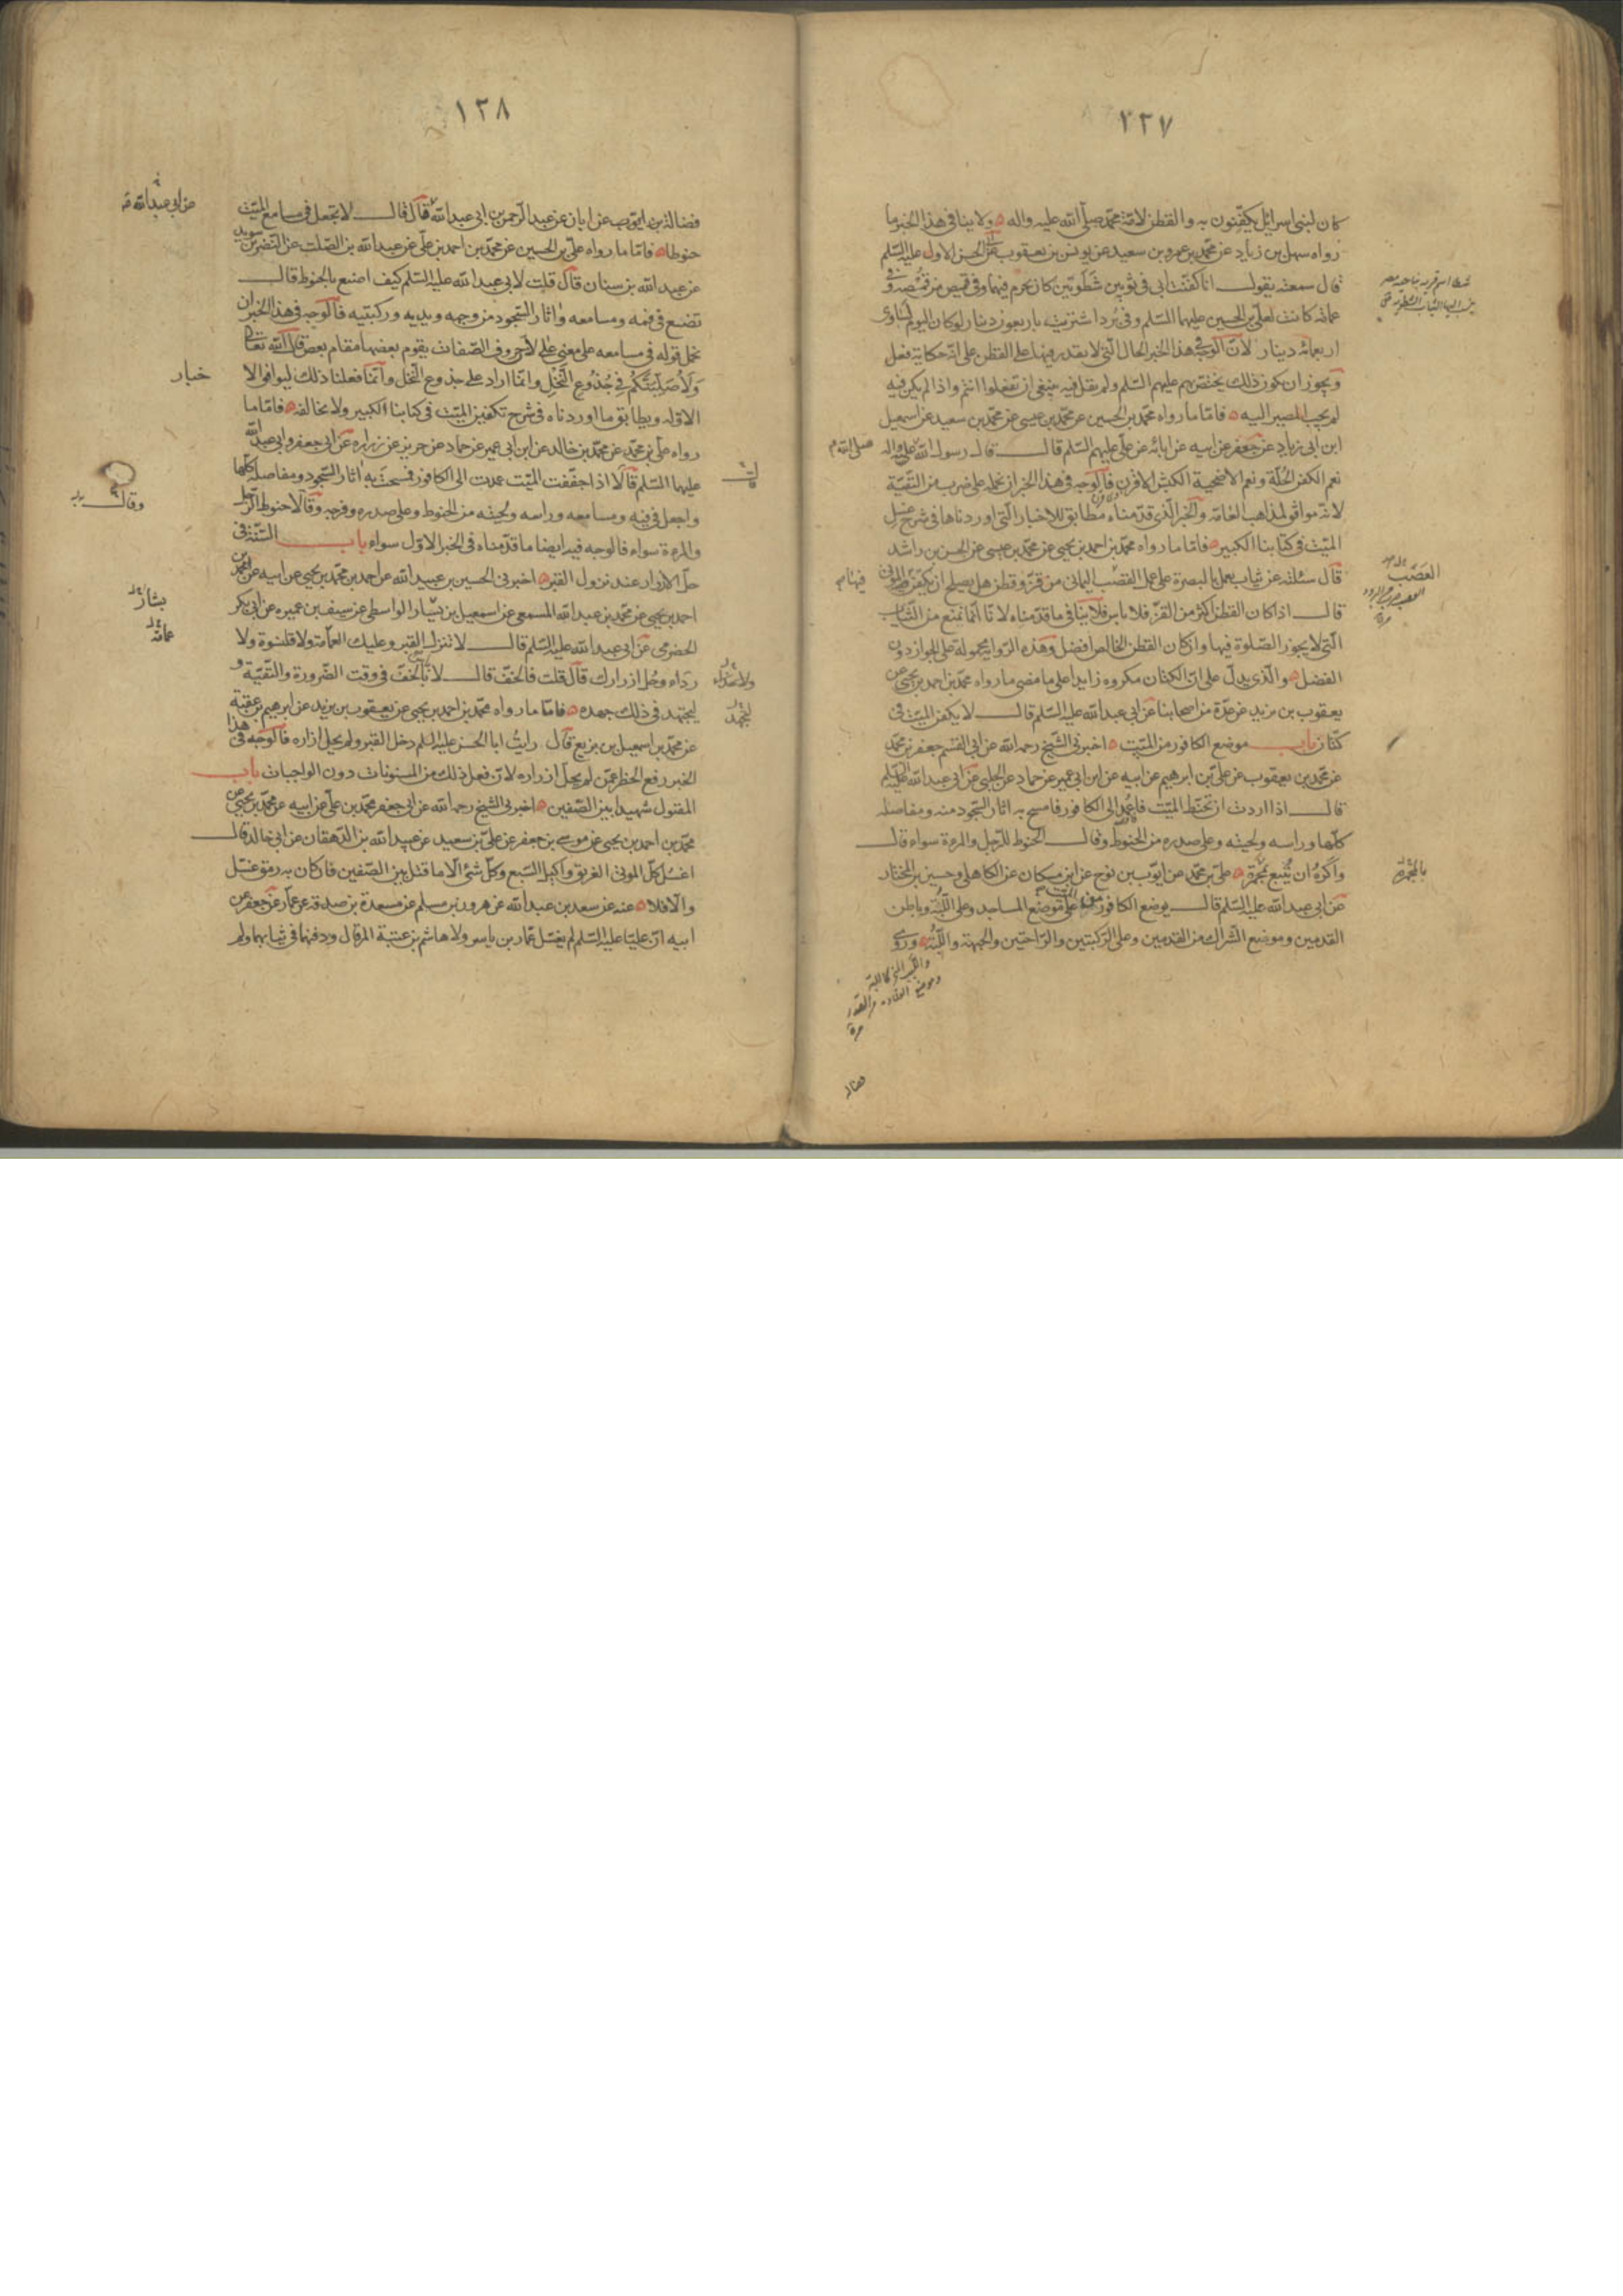 ١٢٧
كان لبنى اسرائيل يكفنون به والقطن لامة محمد صلى الله عليه واله ولا ينافى هذا الخبر ما
رواه سهل بن زياد عن محمد بن عمرو بن سعيد عن يونس بن يعقوب عن ابى الحسن الاول عليه السلم
قال سمعته يقول انا كفنت ابى فى ثوبين شطويين كان يحرم فيهما وفى قميص من قمصه وفى
عمامة كانت لعلى بن الحسين عليهما السلم وفى برد اشتريته باربعون دينار لو كان اليوم لساوى
اربعمائة دينار لان الوجه فى هذا الخبر الحال التى لا يقدر فيها على القطن على انه حكاية فعل
ويجوز ان يكون ذلك يختص بهم عليهم السلم ولم يقل فيه ينبغى ان تفعلوا انتم واذا لم يكن فيه
لم يجب المصير اليه فاما ما رواه محمد بن الحسين عن محمد بن عيسى عن محمد بن سعيد عن اسمعيل
ابن ابى زياد عن جعفر عن ابيه عن ابائه عن على عليهم السلم قال قال رسول الله صلى الله عليه واله
نعم الكفن الحلة ونعم الاضحية الكبش الاقرن فالوجه فى هذا الخبر ان نحمله على ضرب من التقية
لانه موافق لمذاهب العامة والخبر الذى قدمناه مطابق للاخبار التى اوردناها فى شرح غسل
الميت فى كتابنا الكبير فاما ما رواه محمد بن احمد بن يحيى عن محمد بن عيسى عن الحسن بن راشد
قال سئلته عن ثياب يعمل بالبصرة على عمل القصب اليمانى من قز وقطن هل يصلح ان يكفن فيها الموتى
قال اذا كان القطن اكثر من القز فلا باس فلا ينافى ما قدمناه لانا انما نمنع من الثياب
التى لا يجوز الصلوة فيها وان كان القطن الخالص افضل وهذه الرواية محمولة على الجواز دون
الفضل والذى يدل على ان الكتان مكروه زايدا على ما مضى ما رواه محمد بن احمد بن يحيى عن
يعقوب بن يزيد عن عدة من اصحابنا عن ابى عبد الله عليه السلم قال لا يكفن الميت فى
كتان باب موضع الكافور من الميت اخبرنى الشيخ رحمه الله عن ابى القسم جعفر بن محمد
عن محمد بن يعقوب عن على بن ابرهيم عن ابيه عن ابن ابى عمير عن حماد عن الحلبى عن ابى عبد الله عليه السلم
قال اذا اردت ان تحنط الميت فاعمد الى الكافور فامسح به اثار السجود منه ومفاصله
كلها وراسه ولحيته وعلى صدره من الحنوط وقال الحنوط للرجل والمرءة سواء قال
واكره ان يتبع بمجمرة على بن محمد عن ايوب بن نوح عن ابن مسكان عن الكاهلى وحسين بن المختار
عن ابى عبد الله عليه السلم قال يوضع الكافور من الميت على موضع المساجد وعلى اللبة وباطن
القدمين وموضع الشراك من القدمين وعلى الركبتين والراحتين والجبهة واللبة وروى
العصب
بالمجمرة
فضاله
١٢٨
فضالة بن ايوب عن ابان عن عبد الرحمن بن ابى عبد الله قال قال لا تجعل فى مسامع الميت
حنوطا فاما ما رواه على بن الحسين عن محمد بن احمد بن على عن عبد الله بن الصلت عن النضر بن سويد
عن عبد الله بن سنان قال قلت لابى عبد الله عليه السلم كيف اصنع بالحنوط قال
تضع فى فمه ومسامعه واثار السجود من وجهه ويديه وركبتيه فالوجه فى هذا الخبر ان
نحمل قوله فى مسامعه على معنى على لان حروف الصفات يقوم بعضها مقام بعض قال الله تعالى
ولاصلبنكم فى جذوع النخل وانما اراد على جذوع النخل وانما فعلنا ذلك ليوافق الاخبار
الاوله ويطابق ما اوردناه فى شرح تكفين الميت فى كتابنا الكبير ولا يخالفه فاما ما
رواه على بن محمد عن محمد بن خالد عن ابن ابى عمير عن حماد عن حريز عن زراره عن ابى جعفر وابى عبد الله
عليهما السلم قالا اذا جففت الميت عمدت الى الكافور فمسحت به اثار السجود ومفاصله كلها
واجعل فى فيه ومسامعه وراسه ولحيته من الحنوط وعلى صدره وفرجه وقالا حنوط الرجل
والمرءة سواء فالوجه فيه ايضا ما قدمناه فى الخبر الاول سواء باب السنة فى
حل الازرار عند نزول القبر اخبرنى الحسين بن عبيد الله عن احمد بن محمد بن يحيى عن ابيه عن محمد بن
احمد بن يحيى عن محمد بن عبد الله المسمعى عن اسمعيل بن يسار الواسطى عن سيف بن عميره عن ابى بكر
الحضرمى عن ابى عبد الله عليه السلم قال لا تنزل القبر وعليك العمامة ولا قلنسوة ولا
رداء وحل ازرارك قال قلت فالخف قال لا باس بالخف فى وقت الضرورة والتقية و
ليجتهد فى ذلك جهده فاما ما رواه محمد بن احمد بن يحيى عن يعقوب بن يزيد عن ابرهيم بن عقبة
عن محمد بن اسمعيل بن بزيع قال رايت ابا الحسن عليه السلم دخل القبر ولم يحل ازراره فالوجه فى هذا
الخبر رفع الحظر عمن لم يحل ازراره لان فعل ذلك من المسنونات دون الواجبات باب
المقتول شهيدا بين الصفين اخبرنى الشيخ رحمه الله عن ابى جعفر محمد بن على عن ابيه عن محمد بن يحيى عن
محمد بن احمد بن يحيى عن موسى بن جعفر عن على بن سعيد عن عبيد الله بن الدهقان عن ابى خالد قال
اغسل كل الموتى الغريق واكيل السبع وكل شئ الا ما قتل بين الصفين فان كان به رمق غسل
والا فلا عنه عن سعد بن عبد الله عن هرون بن مسلم عن مسعدة بن صدقة عن عمار عن جعفر عن
ابيه ان عليا عليه السلم لم يغسل عمار بن ياسر ولا هاشم بن عتبة المرقال ودفنهما فى ثيابهما ولم
عن ابى عبد الله
وقال
بشار
عمامة